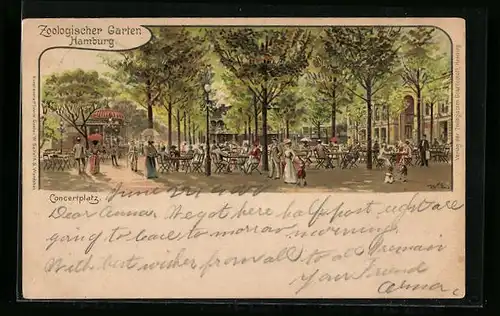 Zoologischer Garten
Hamburg
Concertplatz.
June
Dear Anna, We got here half past eight are
going to leave to morrow morning.
With best wishes from all to all I remain
Your Friend
Alma.